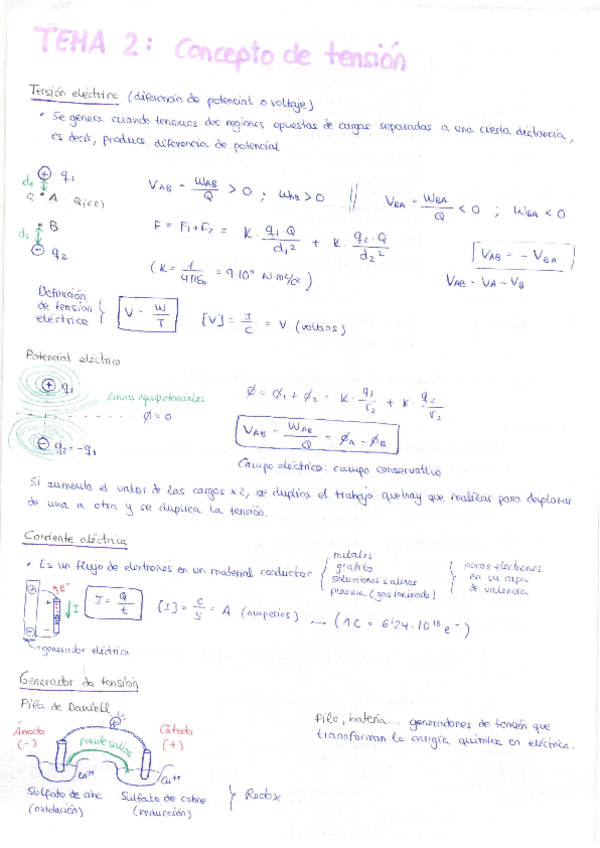 TEMA 2: Concepto de tensión
Tensión eléctrica (diferencia de potencial o voltaje)
• Se genera cuando tenemos dos regiones opuestas de cargas separadas a una cierta distancia,
es decir, produce diferencia de potencial
⊕ q₁
d₁
Q • A Q₁(<0)
• B
d₂
⊖ q₂
V_AB = W_AB/Q > 0 ; W_AB > 0 // V_BA = W_BA/Q < 0 ; W_BA < 0
F = F₁+F₂ = K · q₁·Q/d₁² + K · q₂·Q/d₂²
V_AB = - V_BA
(K = 1/4πε₀ = 9·10⁹ N·m²/c²)
V_AB = V_A - V_B
Definición
de tensión
eléctrica
V = W/T
[V] = J/C = V (voltios)
Potencial eléctrico
⊕ q₁
Líneas equipotenciales
Ø = 0
⊖ q₂ = -q₁
Ø = Ø₁ + Ø₂ = K · q₁/r₂ + K · q₂/r₂
V_AB = W_AB/Q = Ø_A - Ø_B
Campo eléctrico: campo conservativo
Si aumenta el valor de las cargas x2, se duplica el trabajo que hay que realizar para desplazar
de una a otra y se duplica la tensión.
Corriente eléctrica
• Es un flujo de electrones en un material conductor
metales
grafito
soluciones salinas
plasma (gas ionizado)
pocos electrones
en su capa
de valencia
e⁻
+
I
-
I = Q/t
[I] = C/S = A (amperios) → (1C = 6'24·10¹⁸ e⁻)
generador eléctrico
Generador de tensión
Pila de Daniell
Ánodo
(-)
puente salino
Cátodo
(+)
Zn⁺⁺
Cu⁺⁺
Sulfato de zinc
(oxidación)
Sulfato de cobre
(reducción)
Redox
Pila, batería... generadores de tensión que
transforman la energía química en eléctrica.